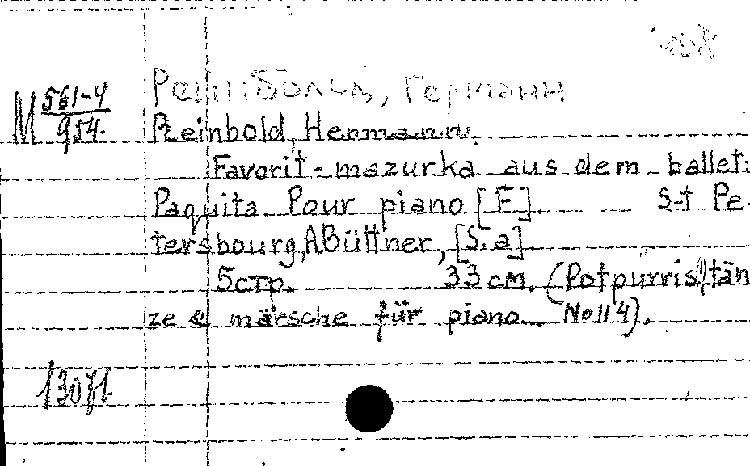 М 561-4/954.
Рейнбольд, Германн
Reinbold, Hermann.
Favorit-mazurka aus dem ballet:
Paquita. Pour piano [F]. S-t Pe-
tersbourg, A Büttner, [S.a]
5 стр. 33 см. (Potpurris, tän
ze & märsche für piano. No 114).